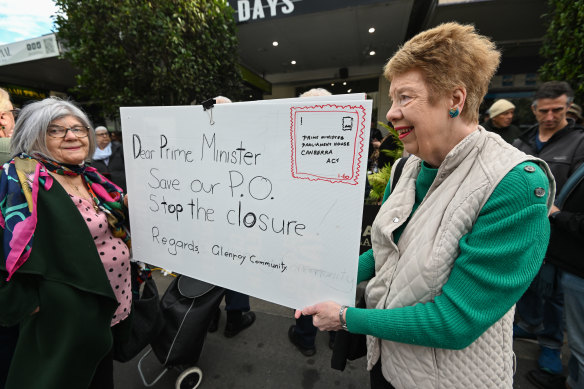 DAYS
Dear Prime Minister
Save our P.O.
Stop the closure
Regards, Glenroy Community
PRIME MINISTER
PARLIAMENT HOUSE
CANBERRA
ACT